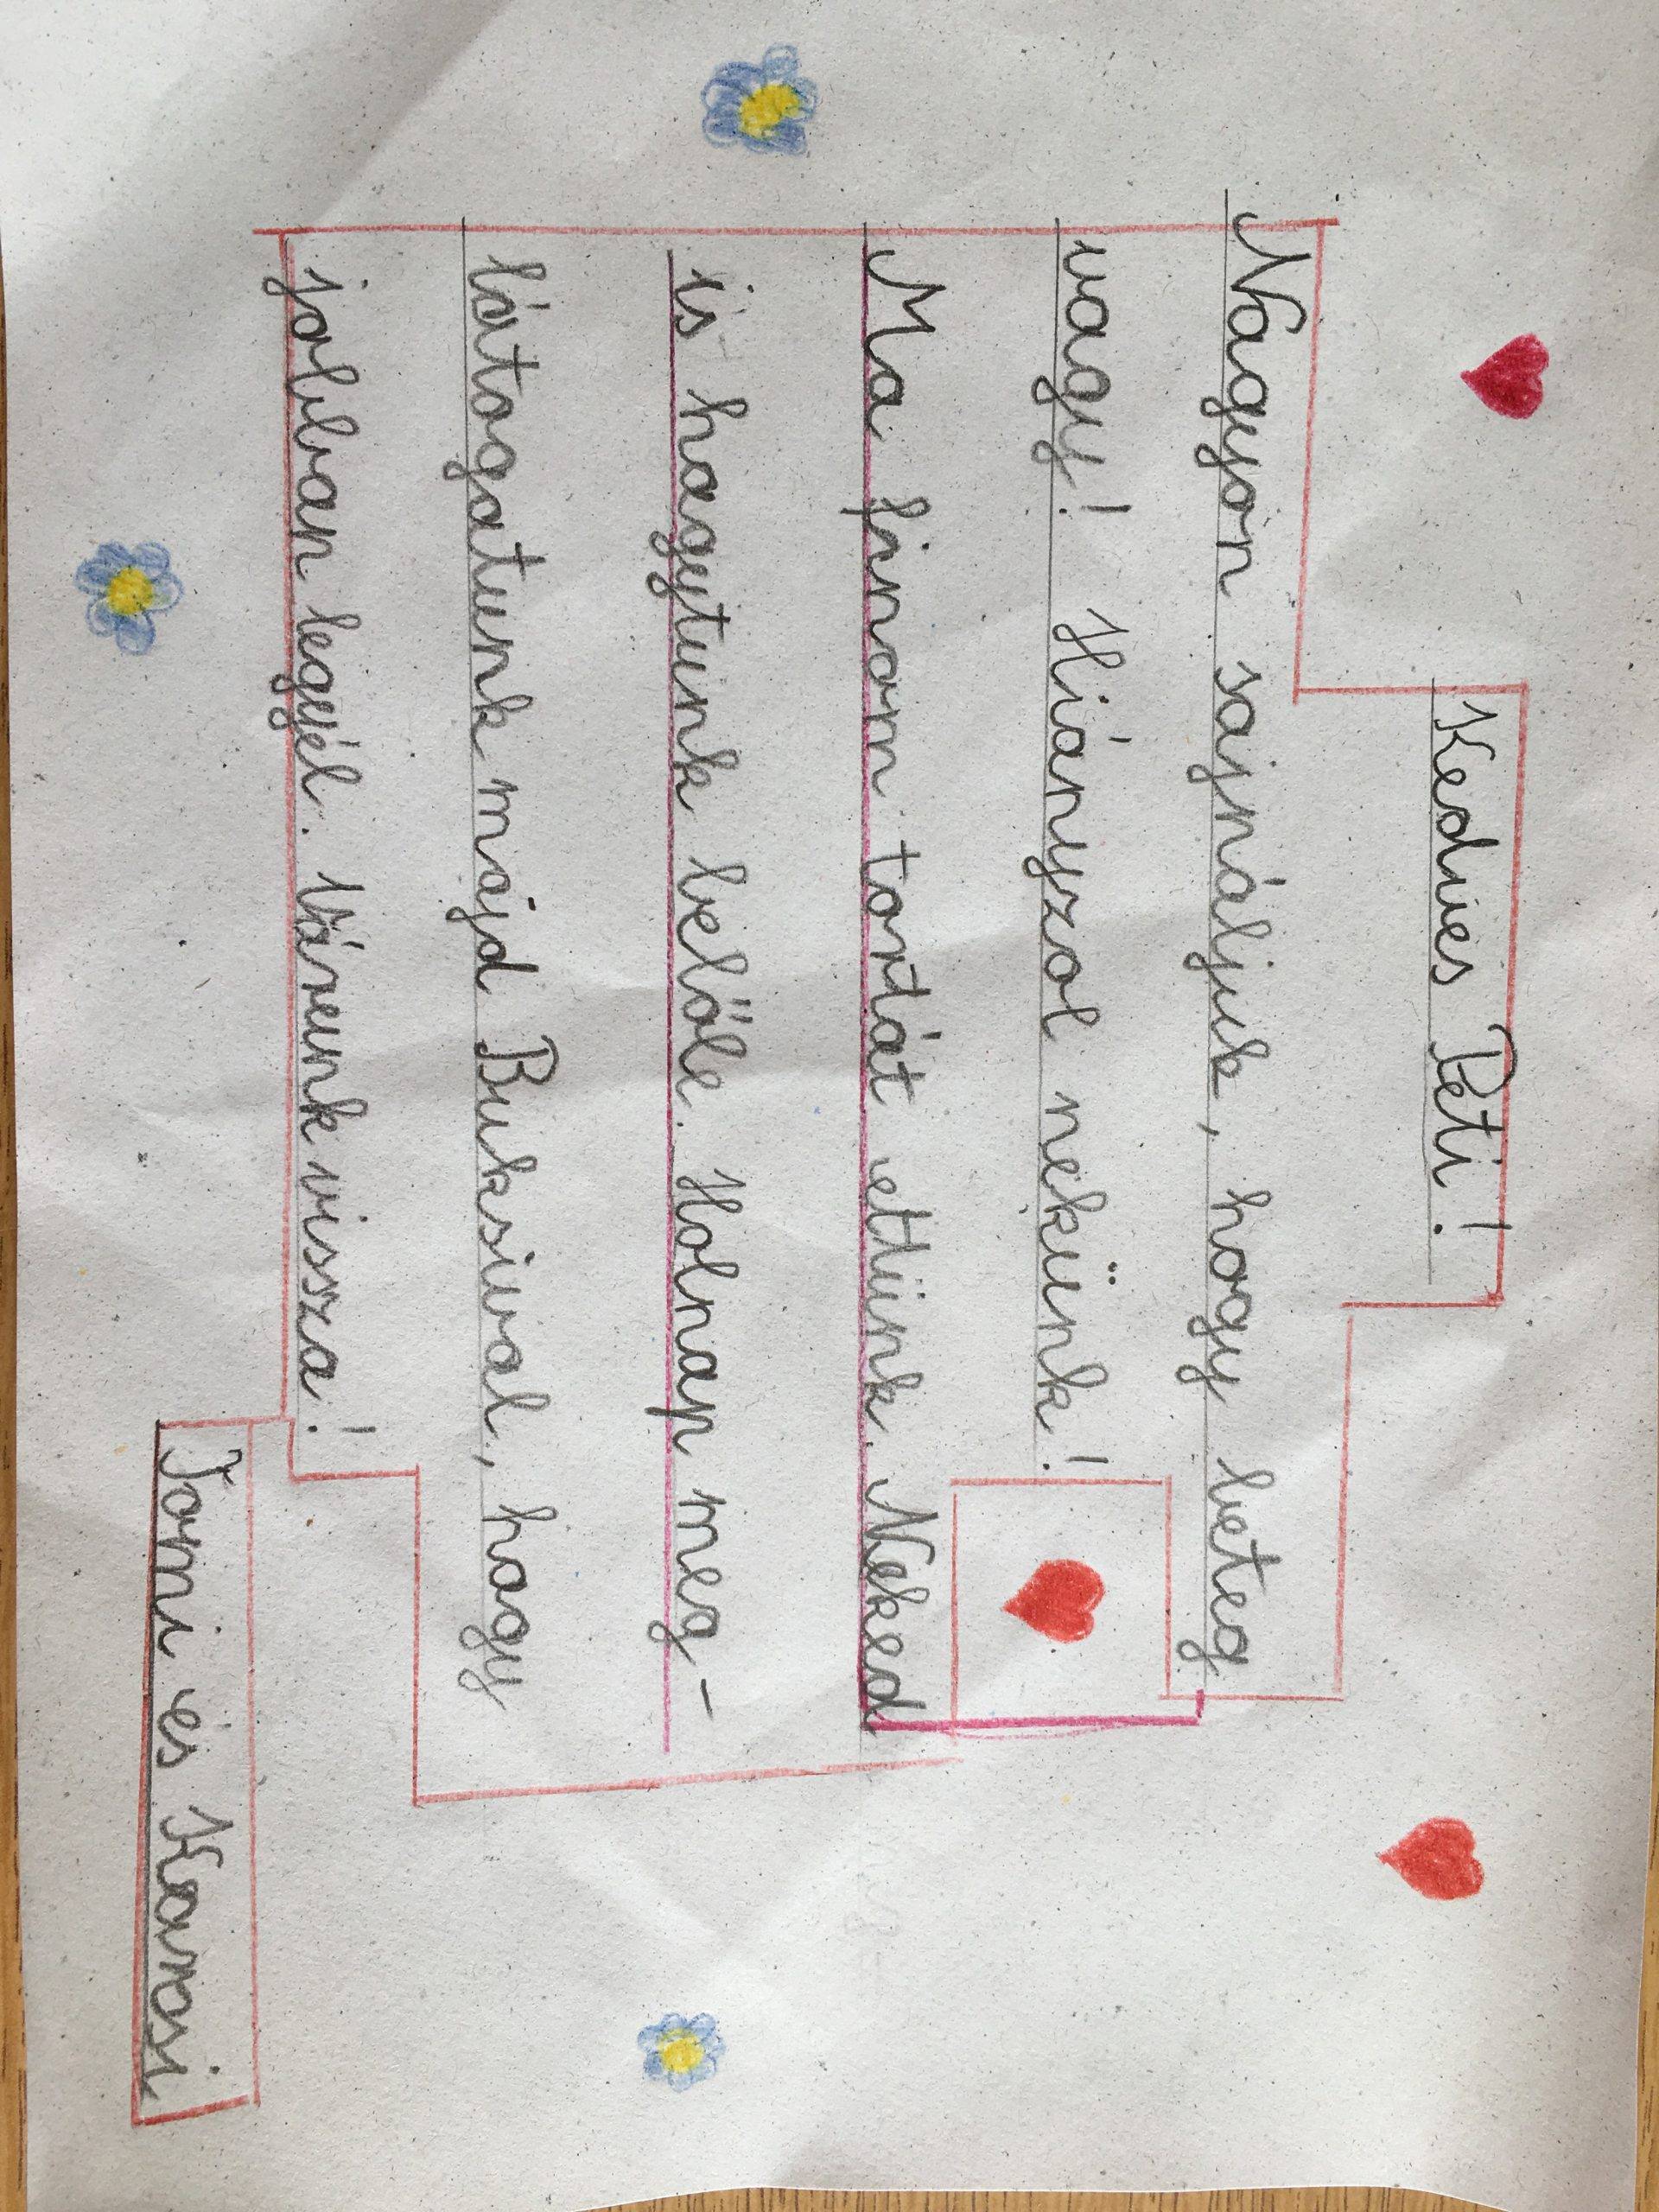 Kedves Peti!
Nagyon sajnáljuk, hogy beteg
vagy! Hiányzol nekünk!
Ma finom tortát ettünk. Neked
is hagytunk belőle. Holnap meg-
látogatunk majd Buksival, hogy
jobban legyél. Várunk vissza!
Tomi és Karosi